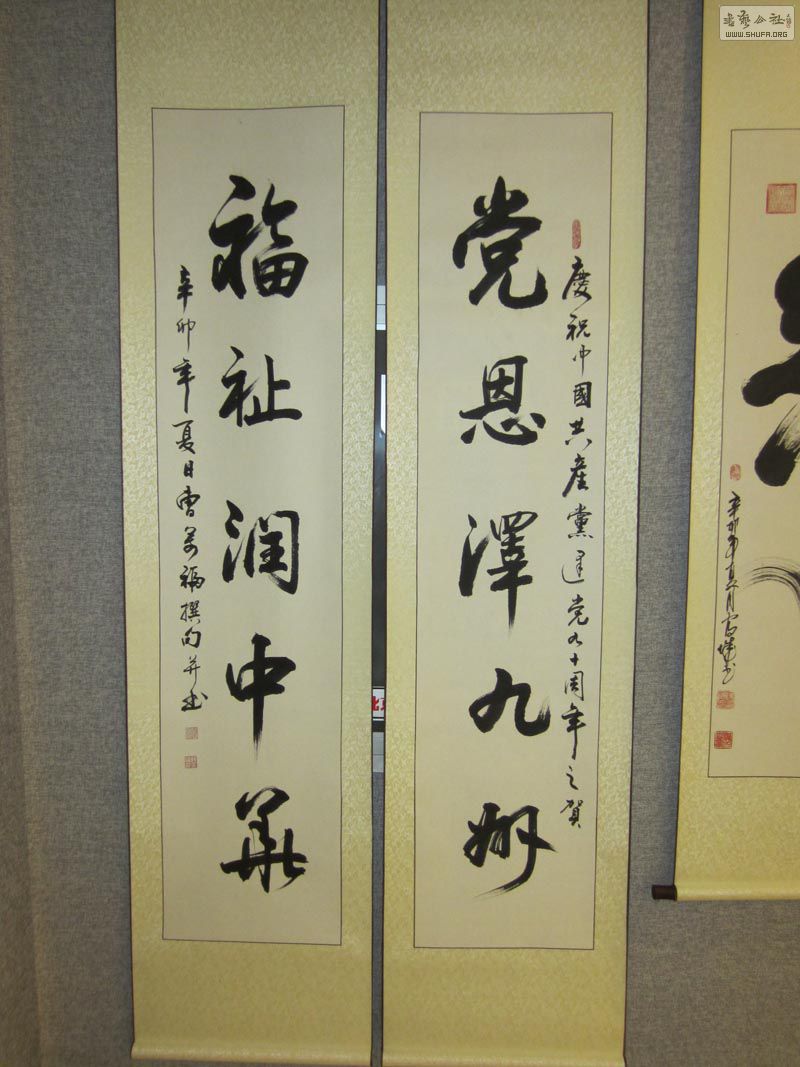 慶祝中國共產黨建党九十周年之賀
党恩澤九州
福祉润中華
辛卯年夏日曹萬福撰句并书
書藝公社
WWW.SHUFA.ORG